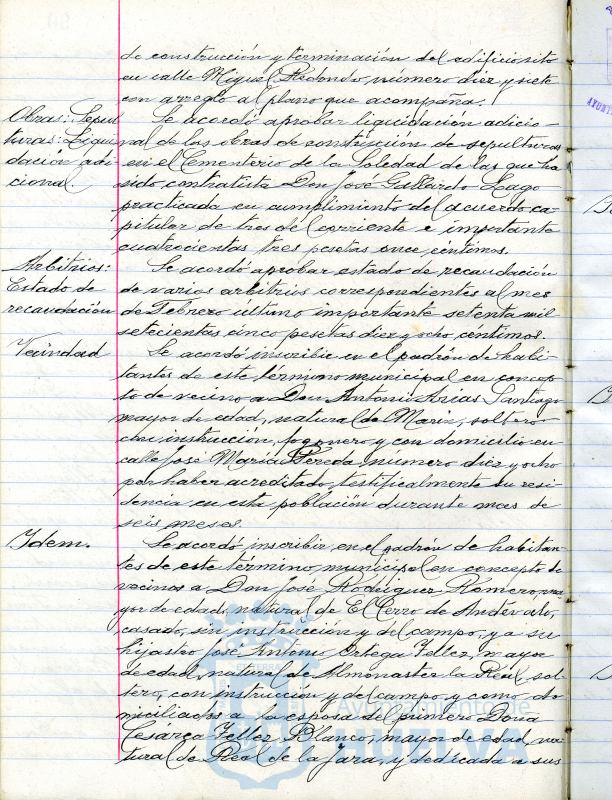 de construcción y terminación del edificio sito
en calle Miguel Redondo, número diez y siete
con arreglo al plano que acompaña.
Obras: Sepul
turas: Liqui
dación adi-
cional.
Se acordó aprobar liquidación adicio-
nal de las obras de construcción de sepulturas
en el Cementerio de la Soledad de las que ha
sido contratista Don José Gallardo Lago
practicada en cumplimiento del acuerdo ca-
pitular de tres del corriente e importante
cuatrocientas tres pesetas once céntimos.
Arbitrios:
Estado de
recaudación
Se acordó aprobar estado de recaudación
de varios arbitrios correspondientes al mes
de Febrero último importante setenta mil
setecientas cinco pesetas diez y ocho céntimos.
Vecindad
Se acordó inscribir en el padrón de habi-
tantes de este término municipal en concep-
to de vecino a Don Antonio Arias Santiago
mayor de edad, natural de Marin, soltero
con instrucción, fogonero y con domicilio en
calle José María Pereda, número diez y ocho
por haber acreditado testificalmente su resi-
dencia en esta población durante mas de
seis meses.
Idem.
Se acordó inscribir en el padrón de habitan-
tes de este término municipal en concepto de
vecinos a Don José Rodríguez Romero, ma
yor de edad, natural de El Cerro de Andévalo,
casado, sin instrucción y del campo, y a su
hijastro José Antonio Ortega Tellez, mayor
de edad, natural de Almonaster la Real, sol-
tero, con instrucción y del campo y como do
miciliados a la esposa del primero Doña
Cesarea Tellez Blanco, mayor de edad, na-
tural de Real de la Jara, y dedicada a sus
Ayuntamiento de
HUELVA